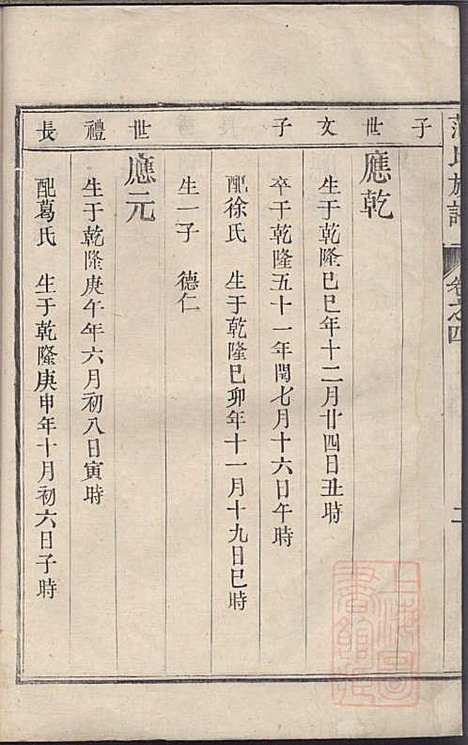 范氏族譜 卷之四 二
子 世 文 子 世 禮 長
應乾
生于乾隆巳巳年十二月廿四日丑時
卒于乾隆五十一年閏七月十六日午時
配徐氏 生于乾隆巳卯年十一月十九日巳時
生一子 德仁
應元
生于乾隆庚午年六月初八日寅時
配葛氏 生于乾隆庚申年十月初六日子時
上海圖書館藏